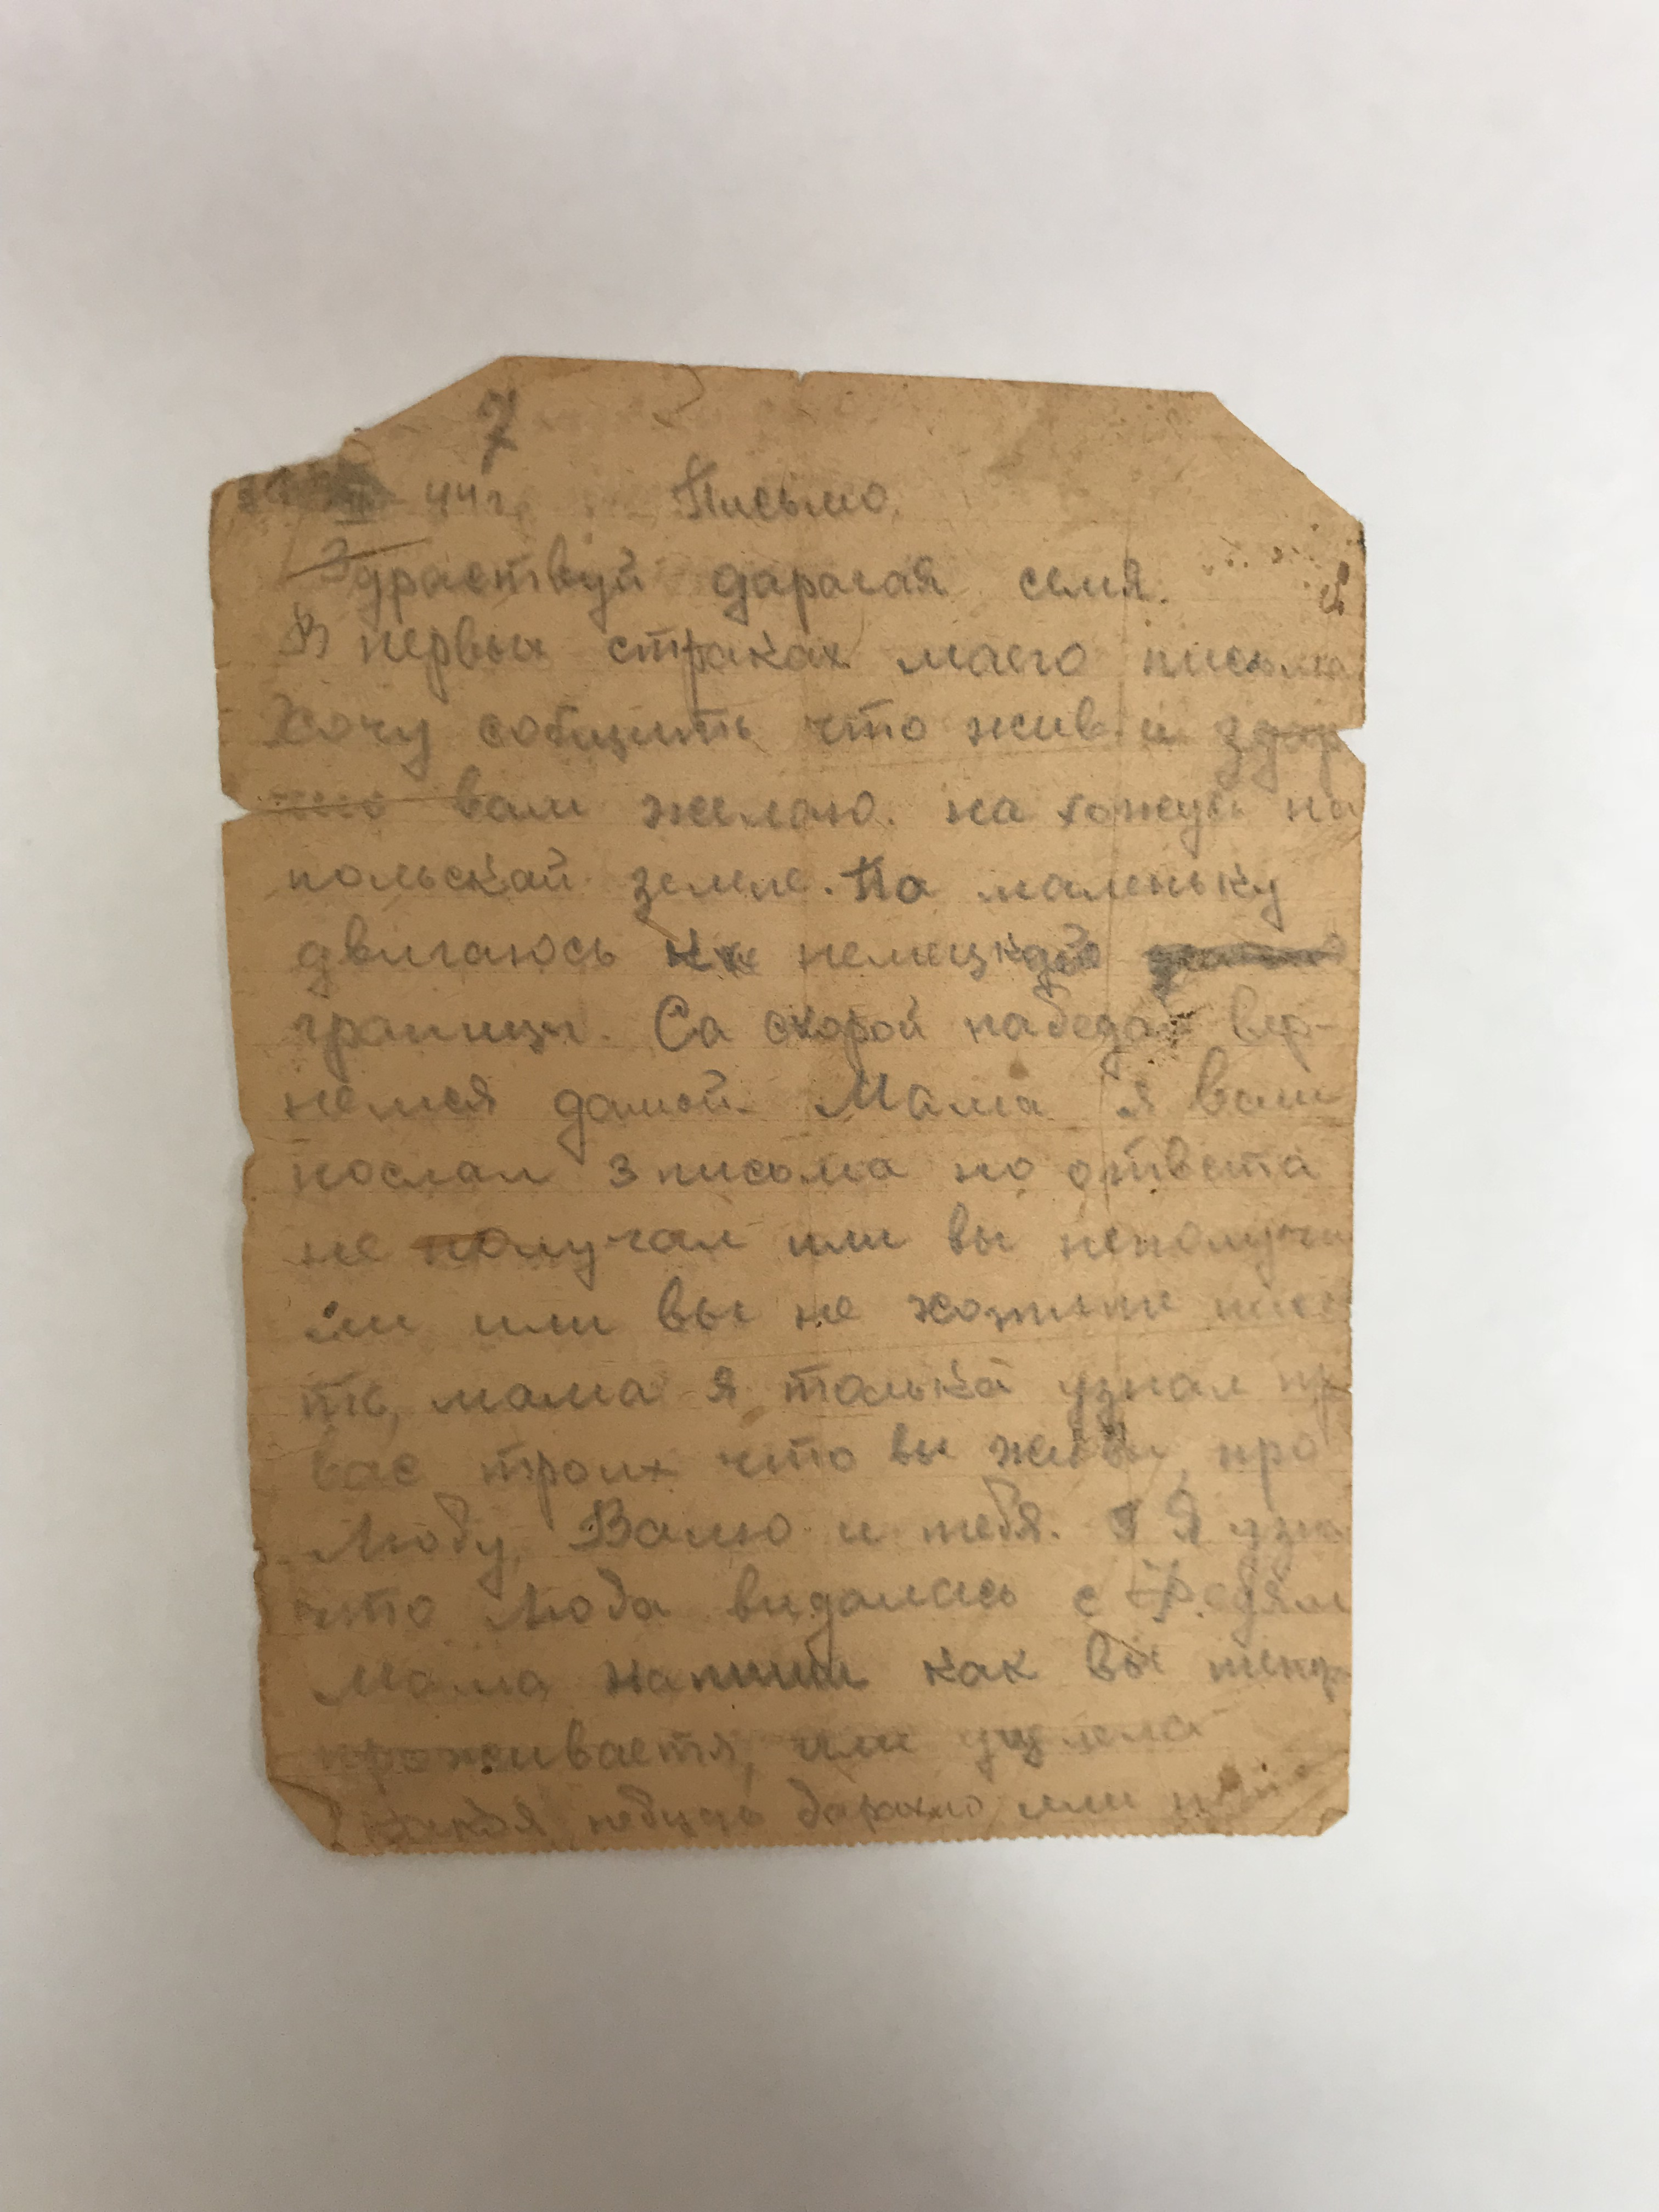 7
44г. Письмо.
Здраствуй дарагая семя.
В первых страках маего письма
Хочу собщить что жив и здар
что вам желаю. на хожусь на
польскай земле. Па маленьку
двигаюсь немецкай
границы. Са скорой пабедай вер-
немся дамой. Мама я вам
послал 3 письма но ответа
не получал или вы неполучи
ли или вы не хотите писа
ть, мама я толька узнал пр
вас троих что вы живы, про
Любу, Валю и тебя. Я узн
что Люба видалась с Федям
Мама напиши как вы тепер
проживаетя, или уцелела
какоя небудь барахло или